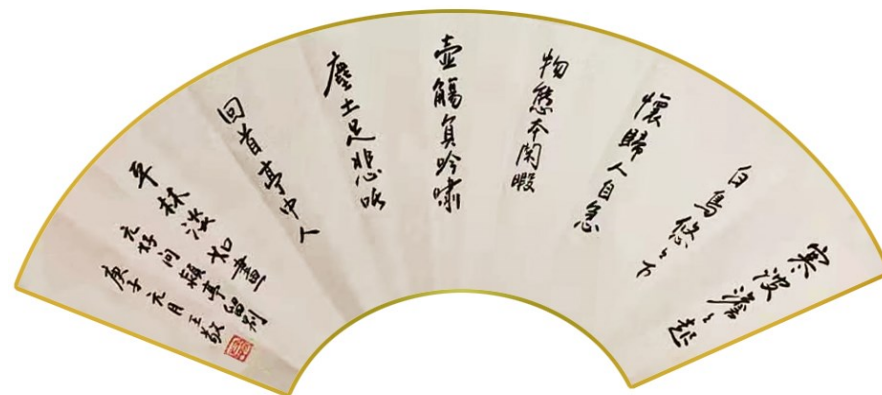 寒波澹々起
白鳥悠々下
懷歸人自急
物態本閑暇
壺觴負吟嘯
塵土足悲咤
回首亭中人
平林淡如畫
元好问颍亭留别
庚子元月王敬